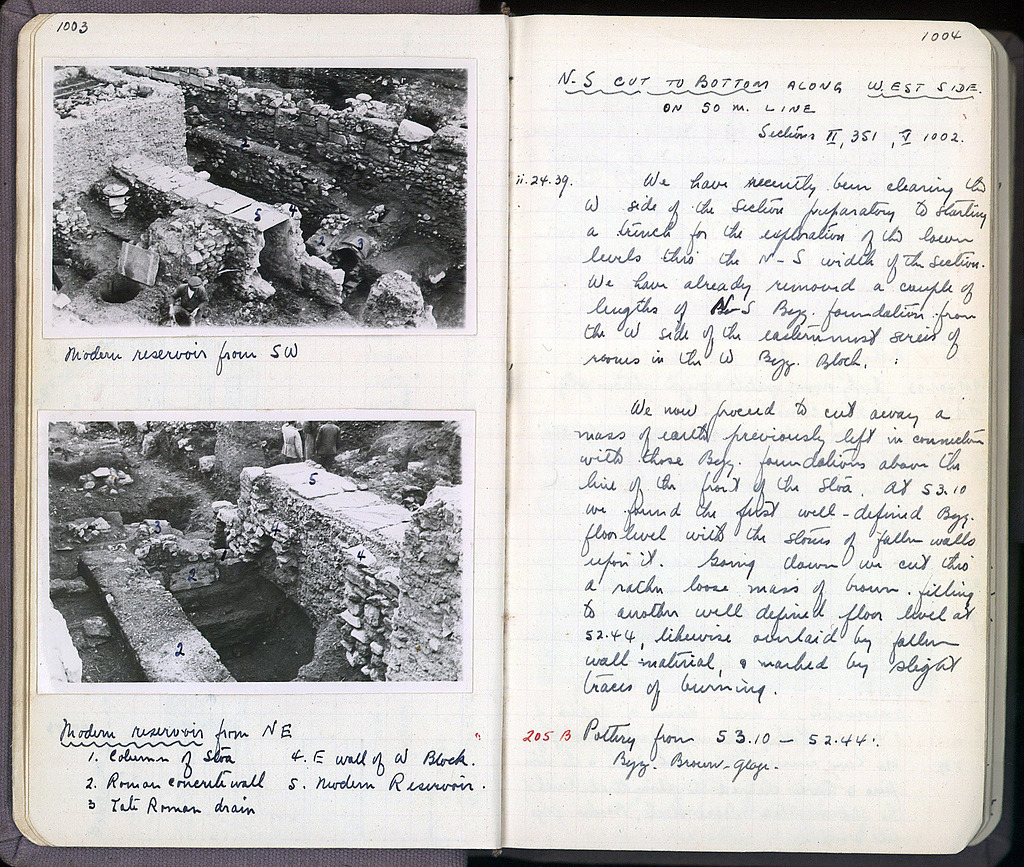 1003
2
5
4
2
3
Modern reservoir from SW
5
3
1
4
2
2
Modern reservoir from NE
1. Column of Stoa
2. Roman concrete wall
3 Late Roman drain
4. E wall of W Block.
5. Modern Reservoir.
1004
N-S CUT TO BOTTOM ALONG WEST SIDE.
ON 50 M. LINE
Sections II, 351, V 1002.
ii.24.39. We have recently been clearing the
W side of the section preparatory to starting
a trench for the exploration of the lower
levels thro the N-S width of the section.
We have already removed a couple of
lengths of N-S Byz. foundation from
the W side of the easternmost series of
rooms in the W Byz. Block.
We now proceed to cut away a
mass of earth previously left in connection
with those Byz. foundations above the
line of the front of the Stoa. At 53.10
we found the first well-defined Byz.
floor level with the stones of fallen walls
upon it. Going down we cut thro
a rather loose mass of brown filling
to another well defined floor level at
52.44, likewise overlaid by fallen
wall material, & marked by slight
traces of burning.
205 B Pottery from 53.10 – 52.44.
Byz. Brown-glaze.